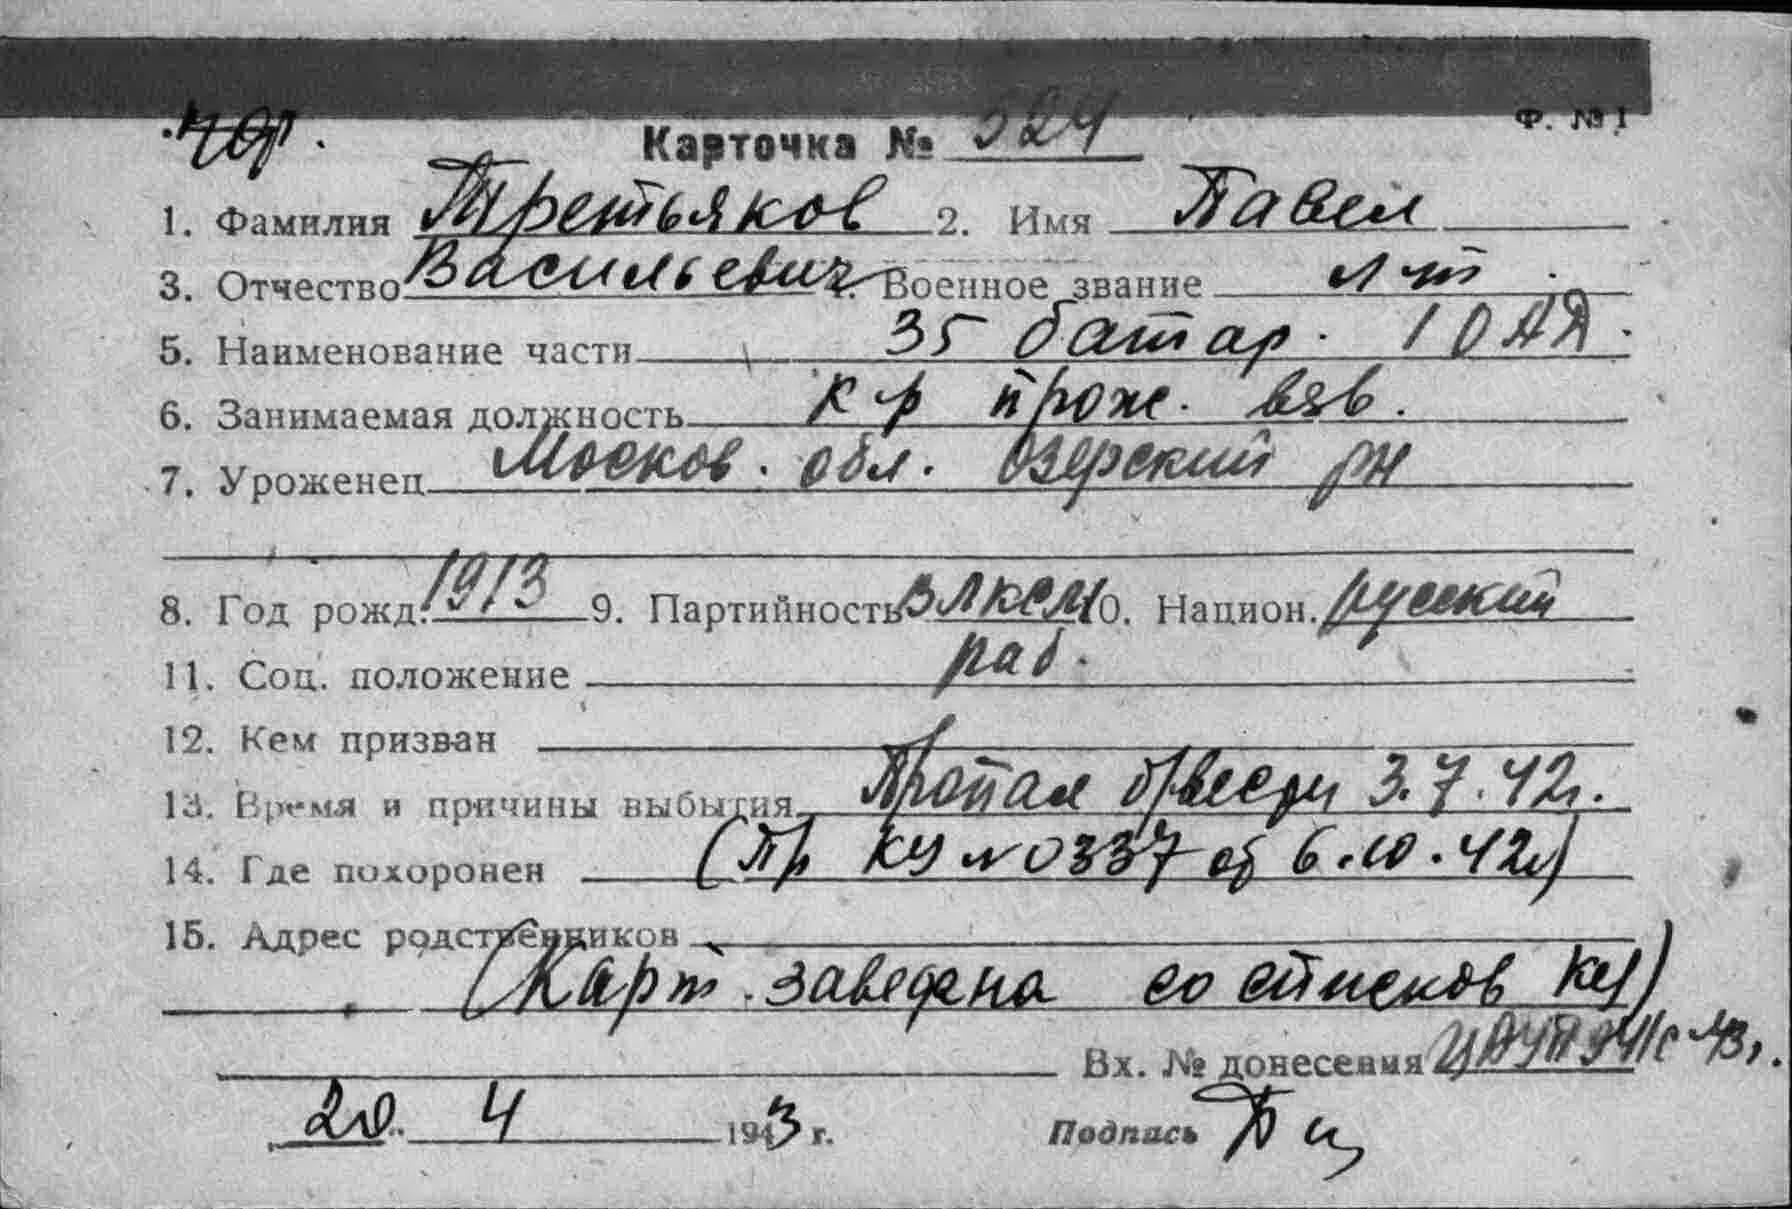 Ф. №1
Карточка № 524
1. Фамилия Третьяков 2. Имя Павел
3. Отчество Васильевич Военное звание лт
5. Наименование части 35 батар. 10 АД.
6. Занимаемая должность к-р прож. взв.
7. Уроженец Москов. обл. Озерский рн
8. Год рожд. 1913 9. Партийность ВЛКСМ 10. Национ. русский
11. Соц. положение раб.
12. Кем призван
13. Время и причины выбытия Пропал б/вести 3.7.42г.
14. Где похоронен (Пр КЧ № 0337 от 6.10.42г)
15. Адрес родственников
(Карт. заведена со списков КЧ)
Вх. № донесения 43г.
20. 4 1943 г. Подпись